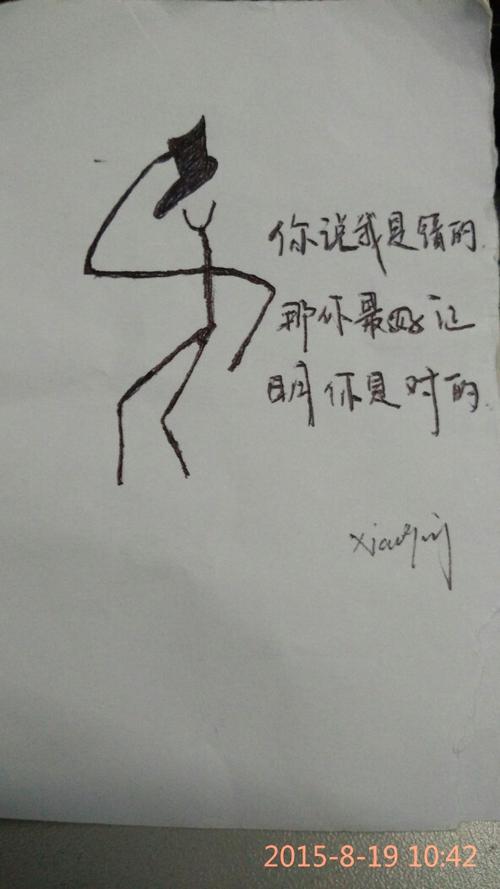 你说我是错的.
那你最好证
明你是对的.
2015-8-19 10:42